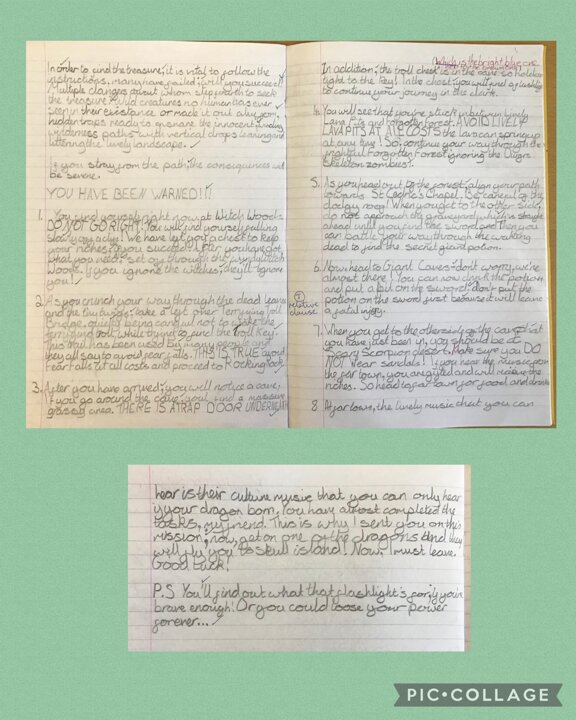 In order to find the treasure, it is vital to follow the
instructions. many have failed; will you succeed!
Multiple dangers await whom step forth to seek
the treasure. Wild creatures no human has ever
seen in their existance or made it out alive from,
hidden traps ready to ensnare the innocent, winding
wilderness paths with vertical drops leaving and
littering the lively landscape.
If you stray from the path, the consequences will
be severe.
YOU HAVE BEEN WARNED!!!
1. You find yourself right now at Witch Woods
DO NOT GO RIGHT. You will find yourself falling
slowly off a cliff! We have left you a chest to keep
your riches if you succeed. After you have got
what you need, set off through the
Woods. If you ignore the witches, they'll ignore
you!
2. As you crunch your way through the dead leaves
and the tiny twigs, take a left over Terrifying Troll
Bridge, quietly being careful not to wake the
terrifying troll while trying to find the Troll Key.
This trail has been used by many people and
they all say to avoid fear falls. THIS IS TRUE avoid
fear falls at all costs and proceed to Rocking Rock
3. After you have arrived, you will notice a cave,
if you go around the cave, you'll find a massive
grassy area. THERE IS A TRAP DOOR UNDERNEATH
which is the bright blue one
In addition, the troll chest is in the cave so hold on
tight to the key! In the chest, you will find a flashlight
to continue your journey in the dark.
4. You will see that you're stuck inbetween lively
Lava Pits and Forgotten Forest. AVOID LIVELY
LAVA PITS AT ALL COSTS the lava can spring up
at any time! So, continue your way through the
frightful Forgotten Forest ignoring the
Skeleton zombies!
5. As you head out of the forest, align your path
towards St George's Chapel. Be careful of the
dodgy roof! When you get to the other side,
do not approach the graveyard which is straight
ahead until you find the sword and Then you
can battle your way through the walking
dead to find the secret giant potion.
6. Now head to Giant Caves: don't worry, we're
almost there! You can now drink the potion
and put a bit on the sword, don't put the
potion on the sword first because it will leave
a fatal injury.
① relative clause
7. When you get to the otherside of the cave that
you have just been in, you should be at
Scary Scorpion desert. Make sure you DO
NOT wear sandals! If you hear the music from
the far town, you are gifted and will receive the
riches. So head to far town for food and drinks
8. At far town, the lively music that you can
hear is their culture music that you can only hear
if your dragon born. You have almost completed the
tasks, my friend. This is why I sent you on this
mission; now, get on one of the dragons and they
will fly you to Skull island! Now, I must leave.
Good luck!
P.S You'll find out what that flashlight's for if you're
brave enough! Or you could loose your power
forever...
PIC•COLLAGE